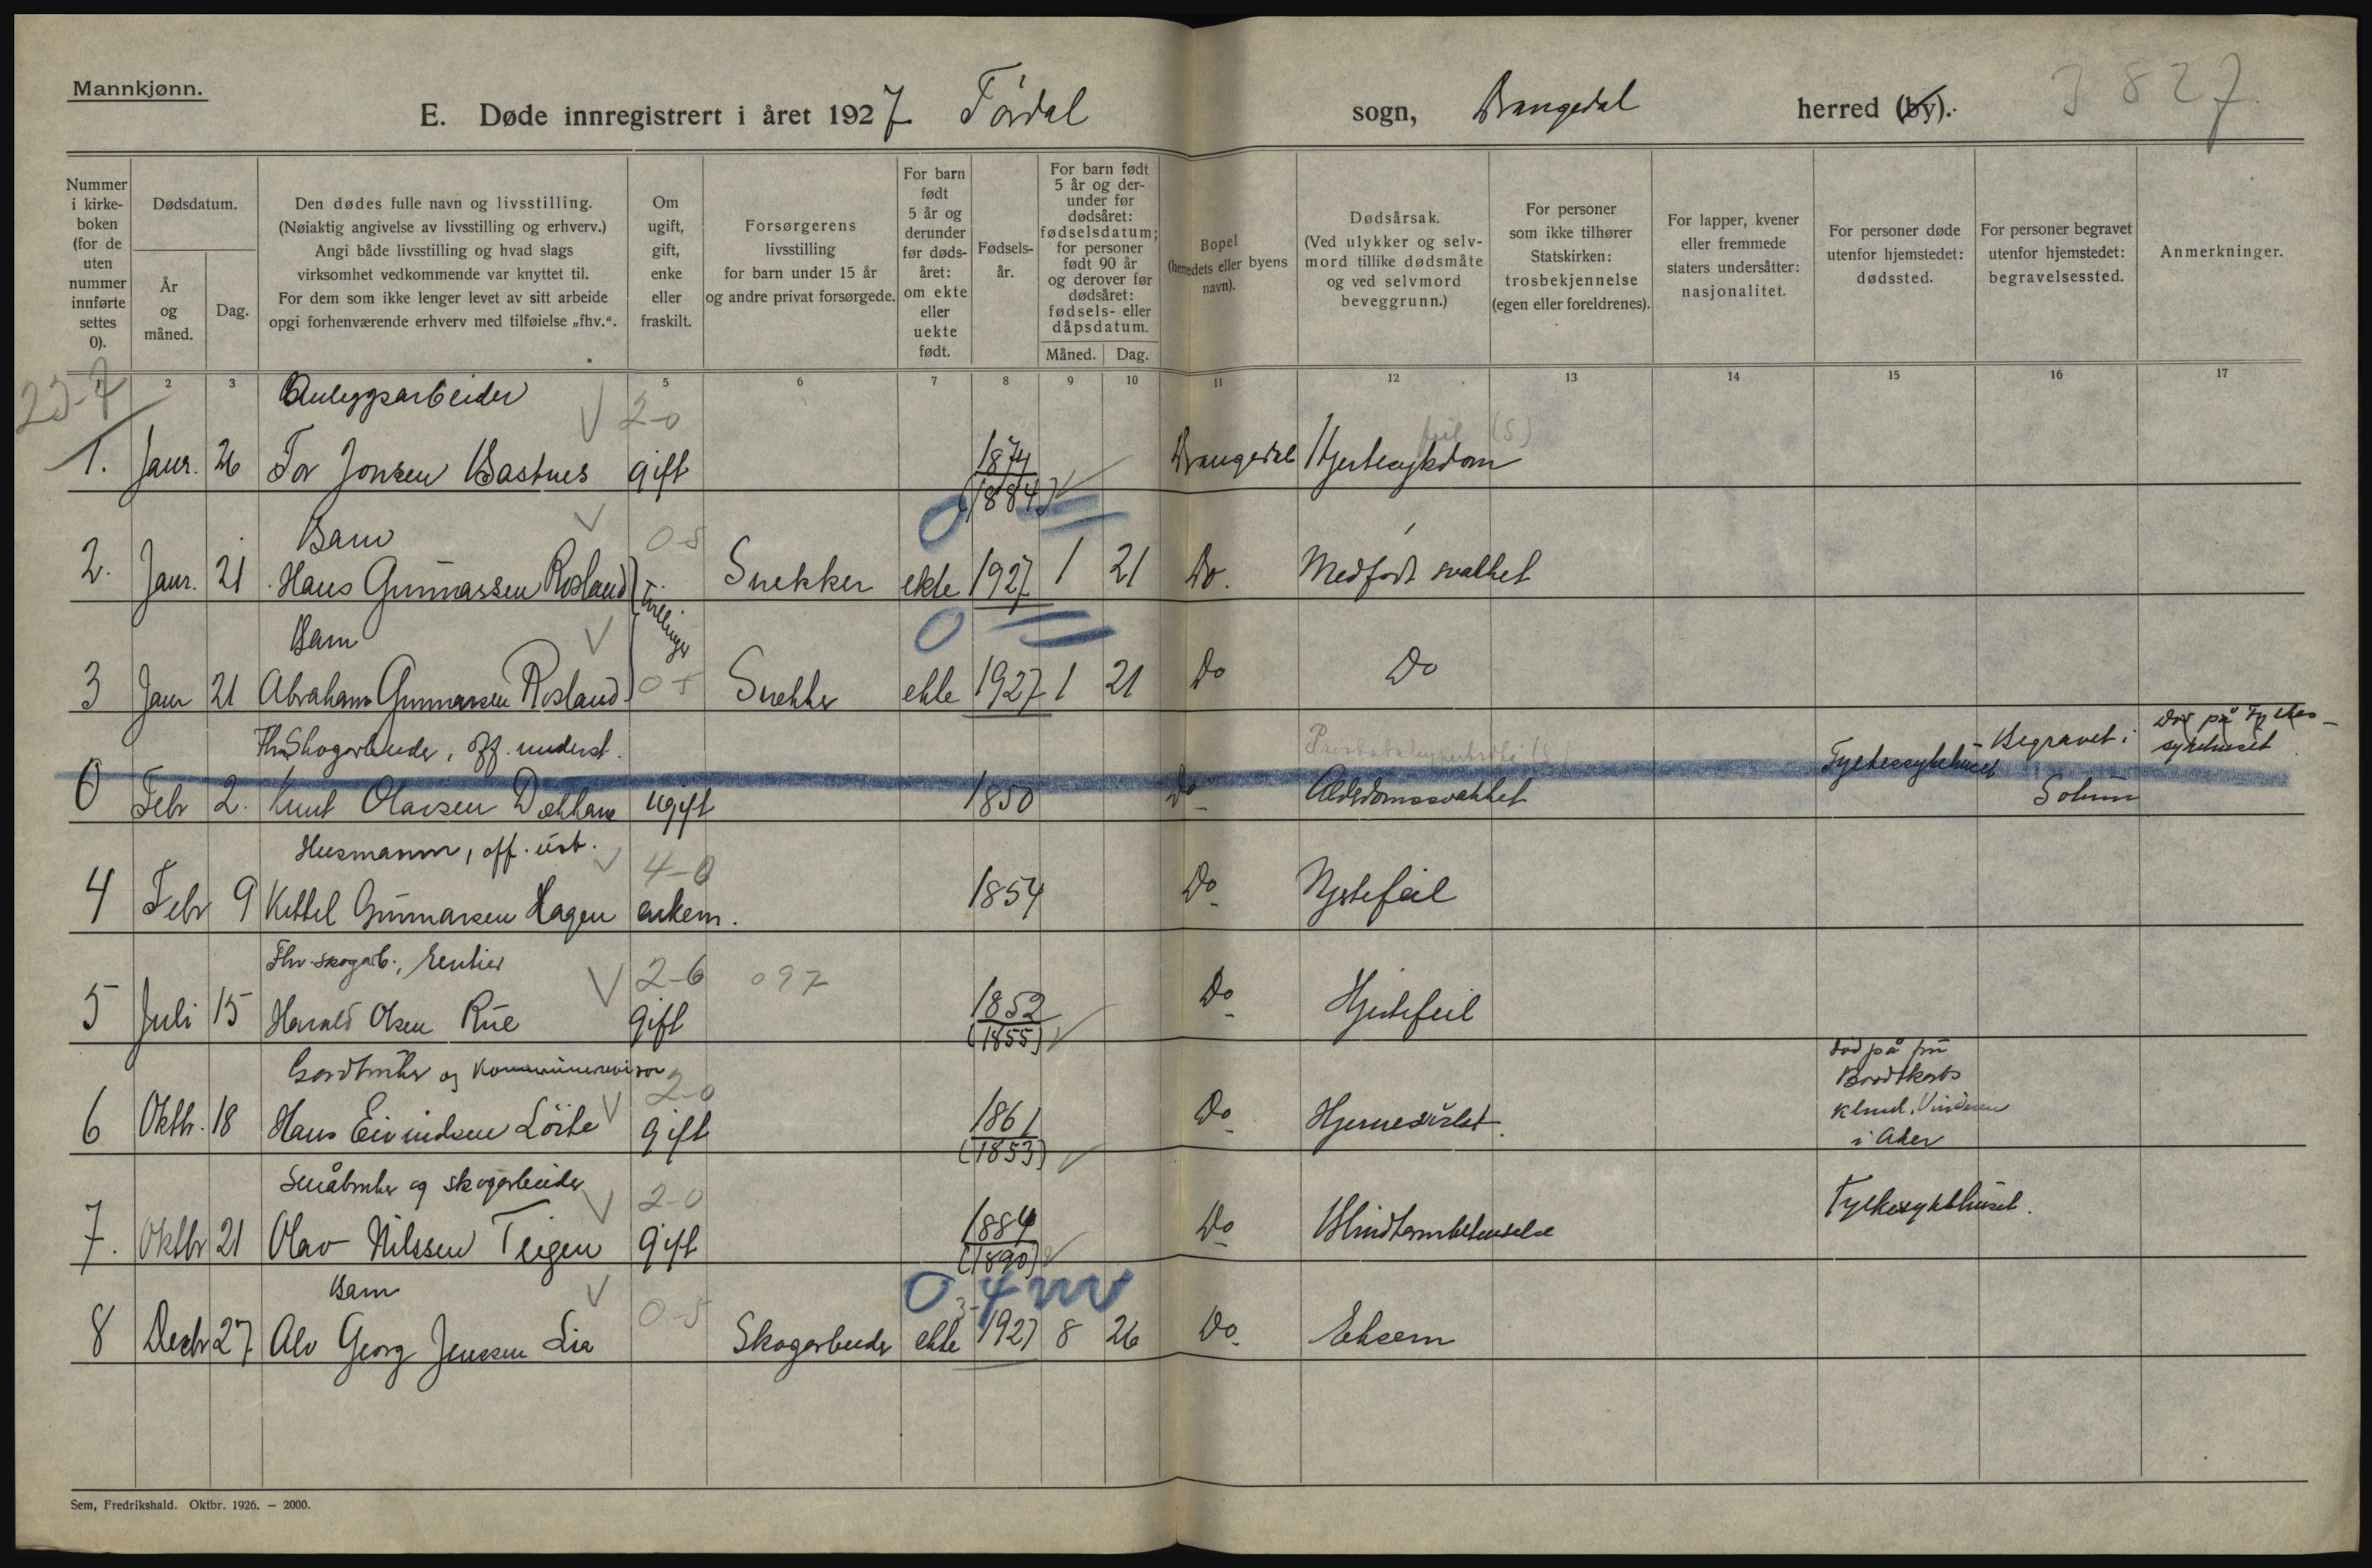 Mannkjønn.
E. Døde innregistrert i året 1927 Tørdal sogn, Drangedal herred (by).
3827
Nummer i kirkeboken (for de uten nummer innførte settes 0).
Dødsdatum.
År og måned.
Dag.
Den dødes fulle navn og livsstilling.
(Nøiaktig angivelse av livsstilling og erhverv.)
Angi både livsstilling og hvad slags
virksomhet vedkommende var knyttet til.
For dem som ikke lenger levet av sitt arbeide
opgi forhenværende erhverv med tilføielse „fhv.“.
Om ugift, gift, enke eller fraskilt.
Forsørgerens livsstilling
for barn under 15 år
og andre privat forsørgede.
For barn født 5 år og derunder før dødsåret: om ekte eller uekte født.
Fødselsår.
For barn født 5 år og derunder før dødsåret: fødselsdatum; for personer født 90 år og derover før dødsåret: fødsels- eller dåpsdatum.
Måned. Dag.
Bopel
(herredets eller byens navn).
Dødsårsak.
(Ved ulykker og selvmord tillike dødsmåte og ved selvmord beveggrunn.)
For personer som ikke tilhører Statskirken: trosbekjennelse (egen eller foreldrenes).
For lapper, kvener eller fremmede staters undersåtter: nasjonalitet.
For personer døde utenfor hjemstedet: dødssted.
For personer begravet utenfor hjemstedet: begravelsessted.
Anmerkninger.
1 2 3 5 6 7 8 9 10 11 12 13 14 15 16 17
23-7
Anleggsarbeider 2-0
1. Janr. 26 Tor Jonsen Bastnes gift 1874 (1884) Drangedal Hjertesykdom feil (5)
Barn 0-5 0
2. Janr. 21 Hans Gunnarssen Rosland Tvillinger Snekker ekte 1927 1 21 Do. Medfødt svakhet
Barn 0
3 Janr 21 Abraham Gunnarsen Rosland 0-5 Snekker ekte 1927 1 21 Do Do
Fhv Skogarbeider, off. underst.
0 Febr 2. Knut Olavsen Dekkane ugift 1850 Do Alderdomssvakhet Fylkessykehuset Begravet i Solum Død på Fylkes-sykehuset
Husmann, off. und. 4-0
4 Febr 9 Kettel Gunnarsen Hagen enkem. 1854 Do Hjertefeil
Fhv. skogarb., rentier 2-6 097
5 Juli 15 Harald Olsen Rue gift 1852 (1855) Do Hjertefeil
Gardbruker og kommunerevisor 2-0
6 Oktbr. 18 Hans Eivindsen Löite gift 1861 (1853) Do Hjerneslag død på fru Bordtkorbs klinik. Vinderen i Aker
Småbruker og skogarbeider 2-0
7. Oktbr 21 Olav Nilssen Teigen gift 1884 (1890) Do Blindtarmbetendelse Fylkessykehuset.
Barn 0 3-4 m
8 Decbr 27 Alv Georg Jenssen Lia 0-5 Skogarbeider ekte 1927 8 26 Do Eksem
Sem, Fredrikshald. Oktbr. 1926. – 2000.